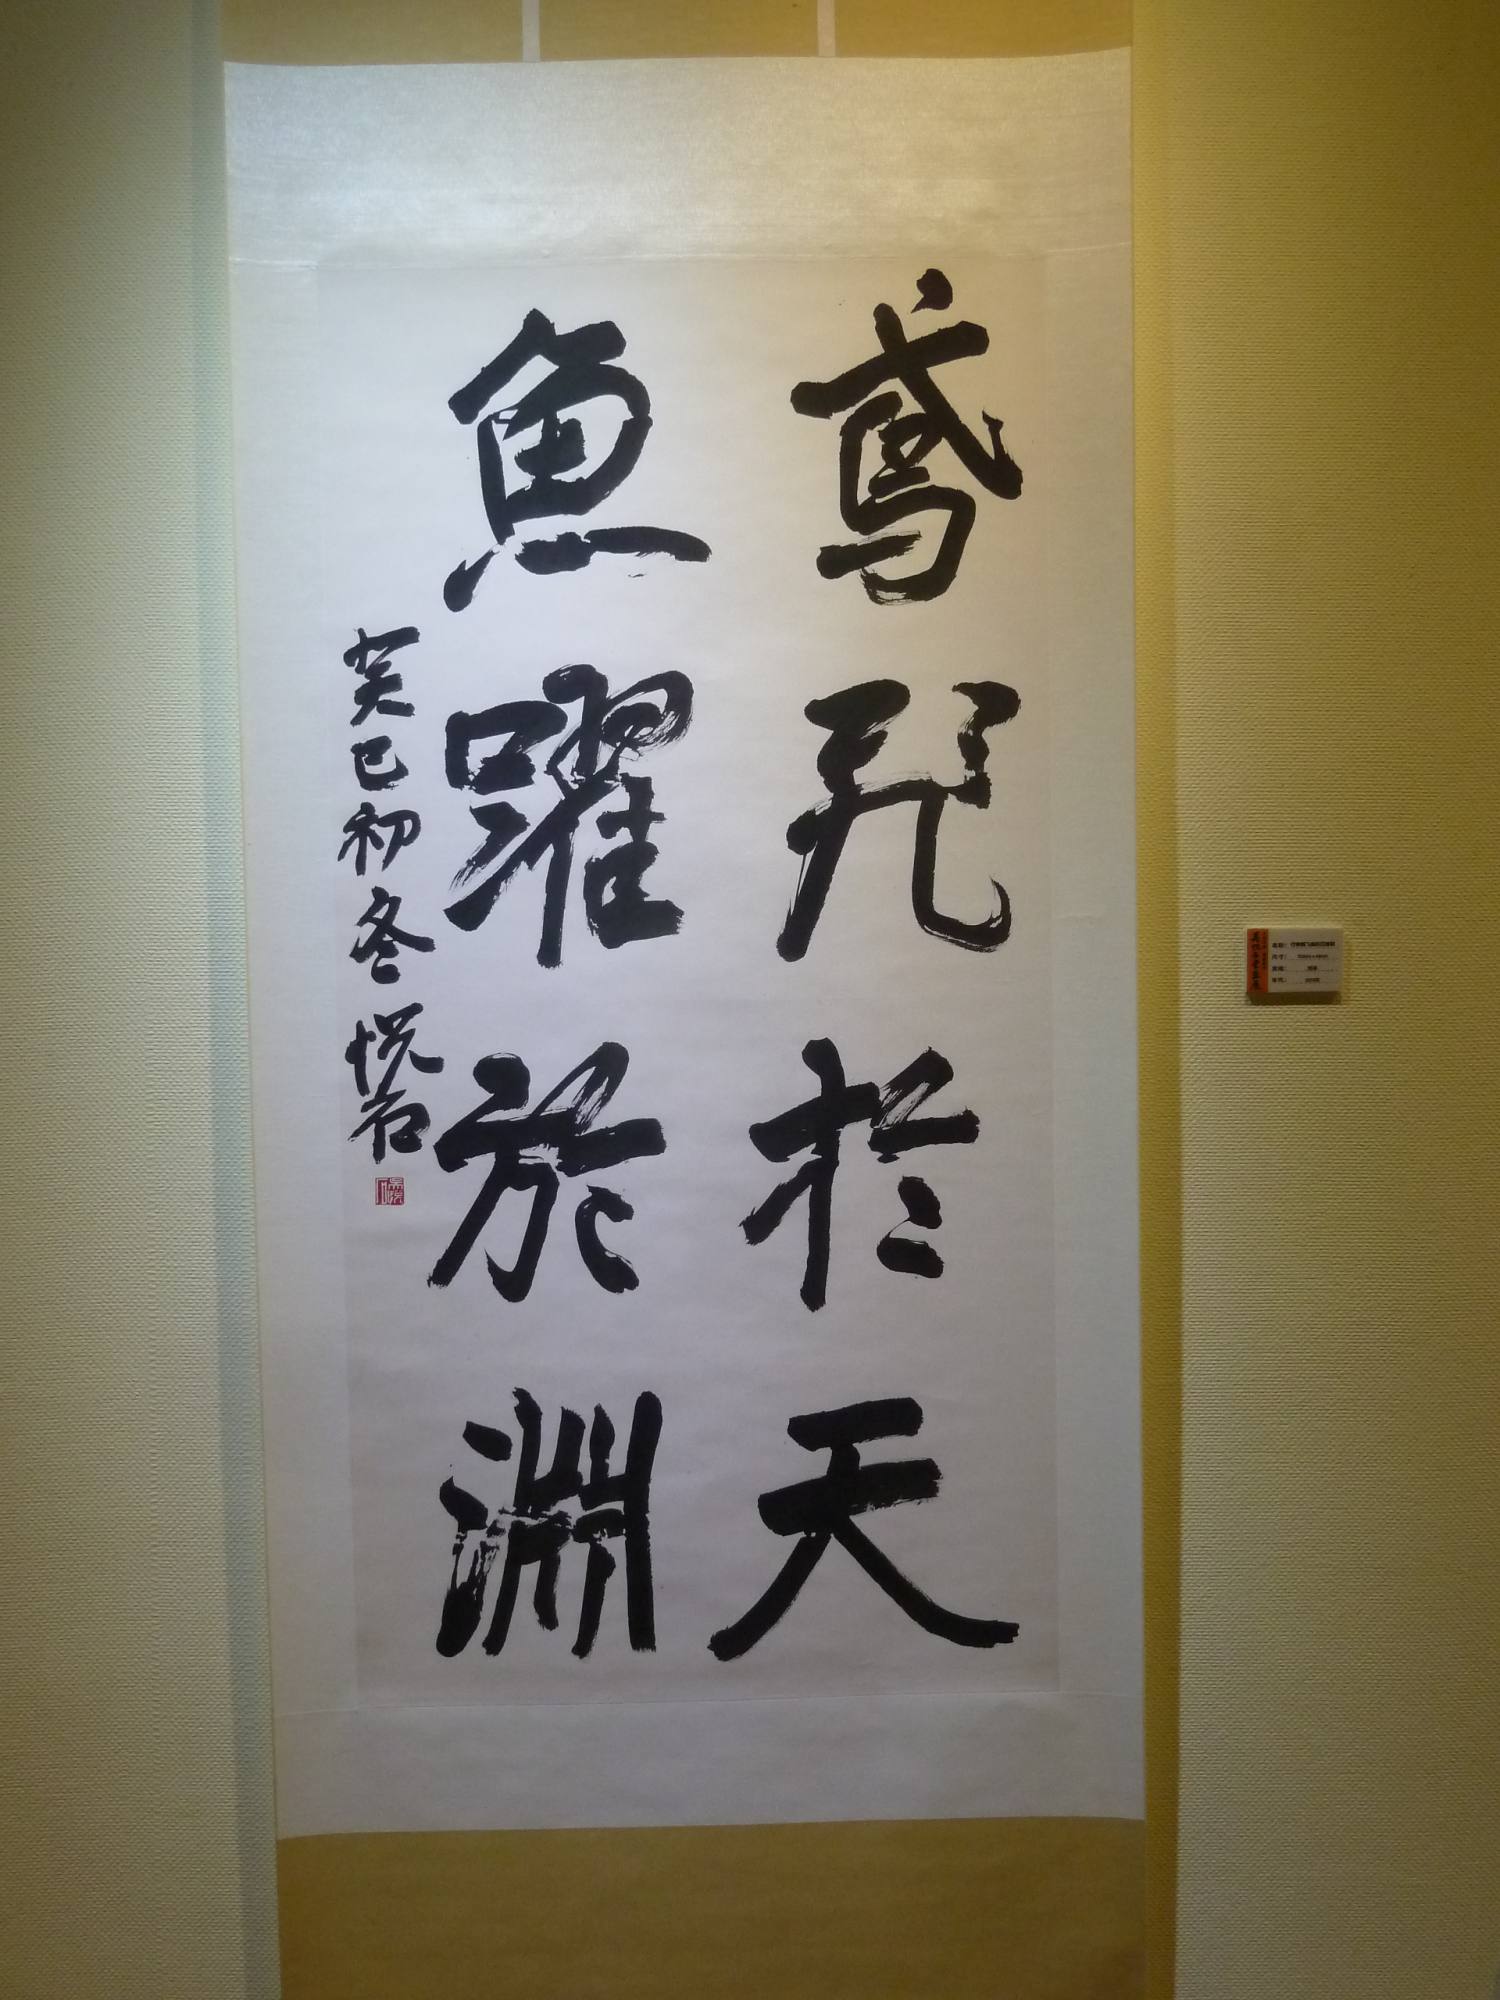 鳶飛於天
魚躍於淵
癸巳初冬悦石